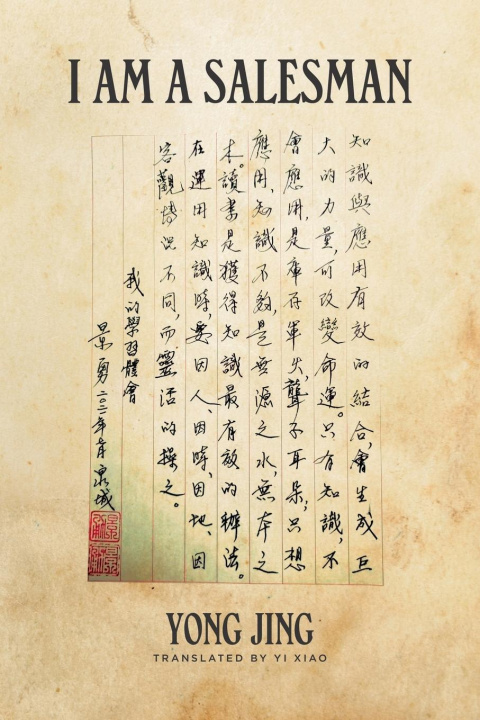 I AM A SALESMAN
知識與應用有效的結合,會生成巨
大的力量,可改變命運。只有知識,不
會應用,是庫存軍火,聾子耳朵;只想
應用,知識不夠,是无源之水,無本之
木。讀書是獲得知識最有效的辦法。
在運用知識時,要因人、因時、因地、因
客觀情況不同,而靈活的操之。
我的學習體會
景勇 年 月 泉城
YONG JING
TRANSLATED BY YI XIAO